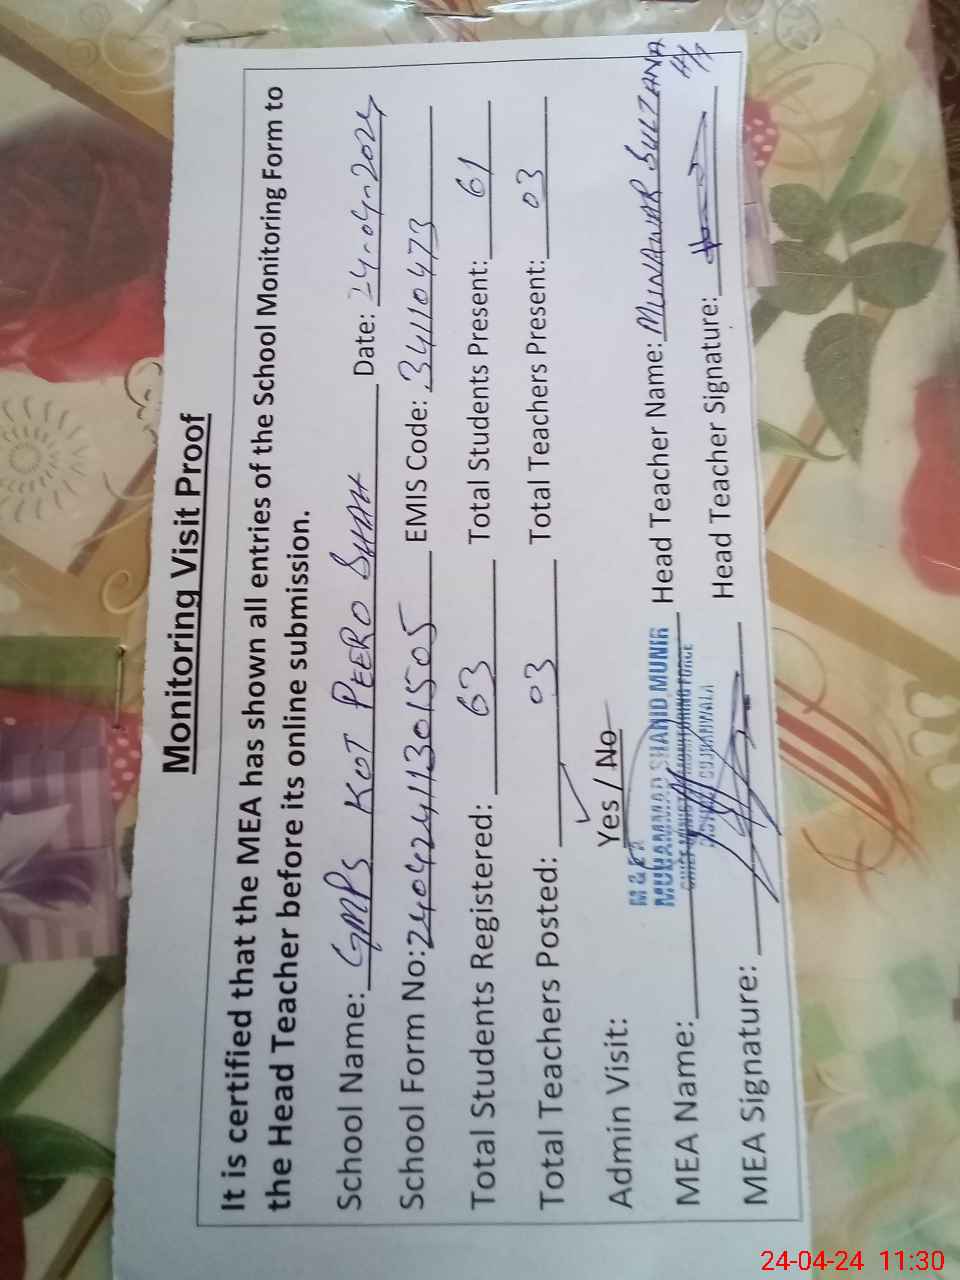 Monitoring Visit Proof
It is certified that the MEA has shown all entries of the School Monitoring Form to
the Head Teacher before its online submission.
School Name: GMPS KOT PEERO SHAH Date: 24-04-2024
School Form No: 24042411301505 EMIS Code: 34110473
Total Students Registered: 63 Total Students Present: 61
Total Teachers Posted: 03 Total Teachers Present: 03
Admin Visit: Yes / No
M & E A
MUHAMMAD SHAHID MUNIR
CHIEF MINISTER MONITORING FORCE
GUJRANWALA
MEA Name: Head Teacher Name: MUNAWAR SULTANA
MEA Signature: Head Teacher Signature:
24-04-24 11:30